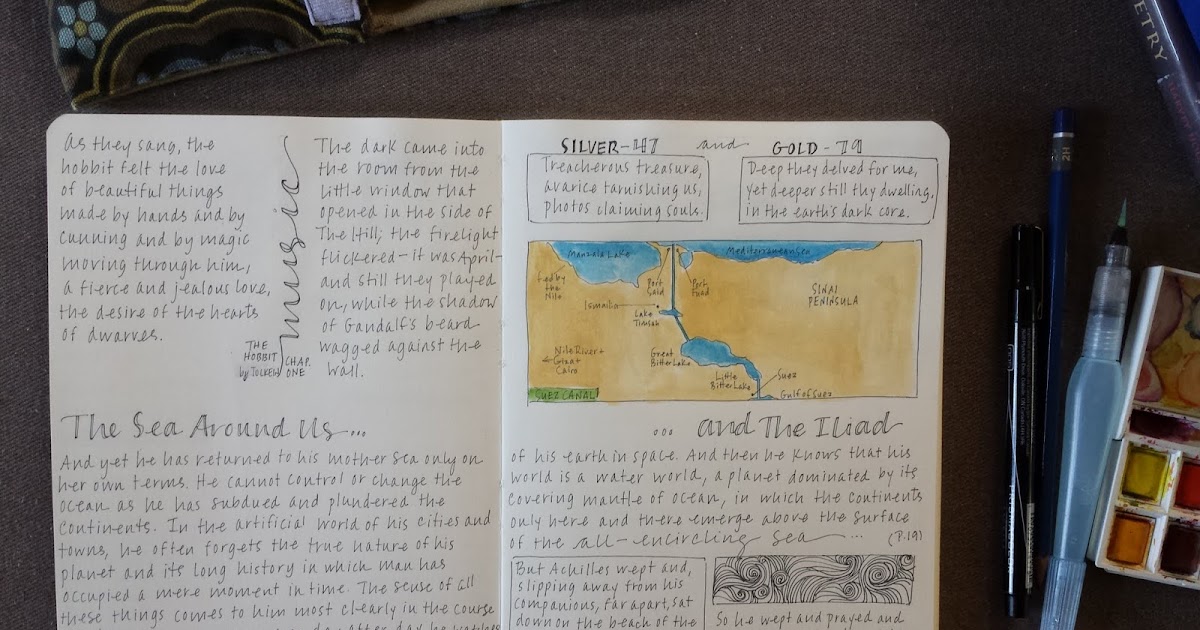 As they sang, the
hobbit felt the love
of beautiful things
made by hands and by
cunning and by magic
moving through him,
a fierce and jealous love,
the desire of the hearts
of dwarves.
music
THE
HOBBIT
by TOLKEIN
CHAP.
ONE
The dark came into
the room from the
little window that
opened in the side of
The Hill; the firelight
flickered - it was April -
and still they played
on, while the shadow
of Gandalf's beard
wagged against the
wall.
The Sea Around Us...
And yet he has returned to his mother sea only on
her own terms. He cannot control or change the
ocean as he has subdued and plundered the
continents. In the artificial world of his cities and
towns, he often forgets the true nature of his
planet and its long history in which man has
occupied a mere moment in time. The sense of all
these things comes to him most clearly in the course
SILVER-47 and GOLD-79
Treacherous treasure,
avarice tarnishing us;
photos claiming souls.
Deep they delved for me,
yet deeper still thy dwelling,
in the earth's dark core.
Manzala Lake
Mediterranean Sea
fed by
the
Nile
Port
Said
Port
Fuad
SINAI
PENINSULA
Ismailia
Lake
Timsah
Nile River +
Giza +
Cairo
Great
Bitter Lake
Little
Bitter Lake
Suez
Gulf of Suez
SUEZ CANAL
... and The Iliad
of his earth in space. And then he knows that his
world is a water world, a planet dominated by its
covering mantle of ocean, in which the continents
only here and there emerge above the surface
of the all-encircling sea ... (P.19)
But Achilles wept and,
slipping away from his
companions, far apart, sat
down on the beach of the
So he wept and prayed and
ETRY
2H